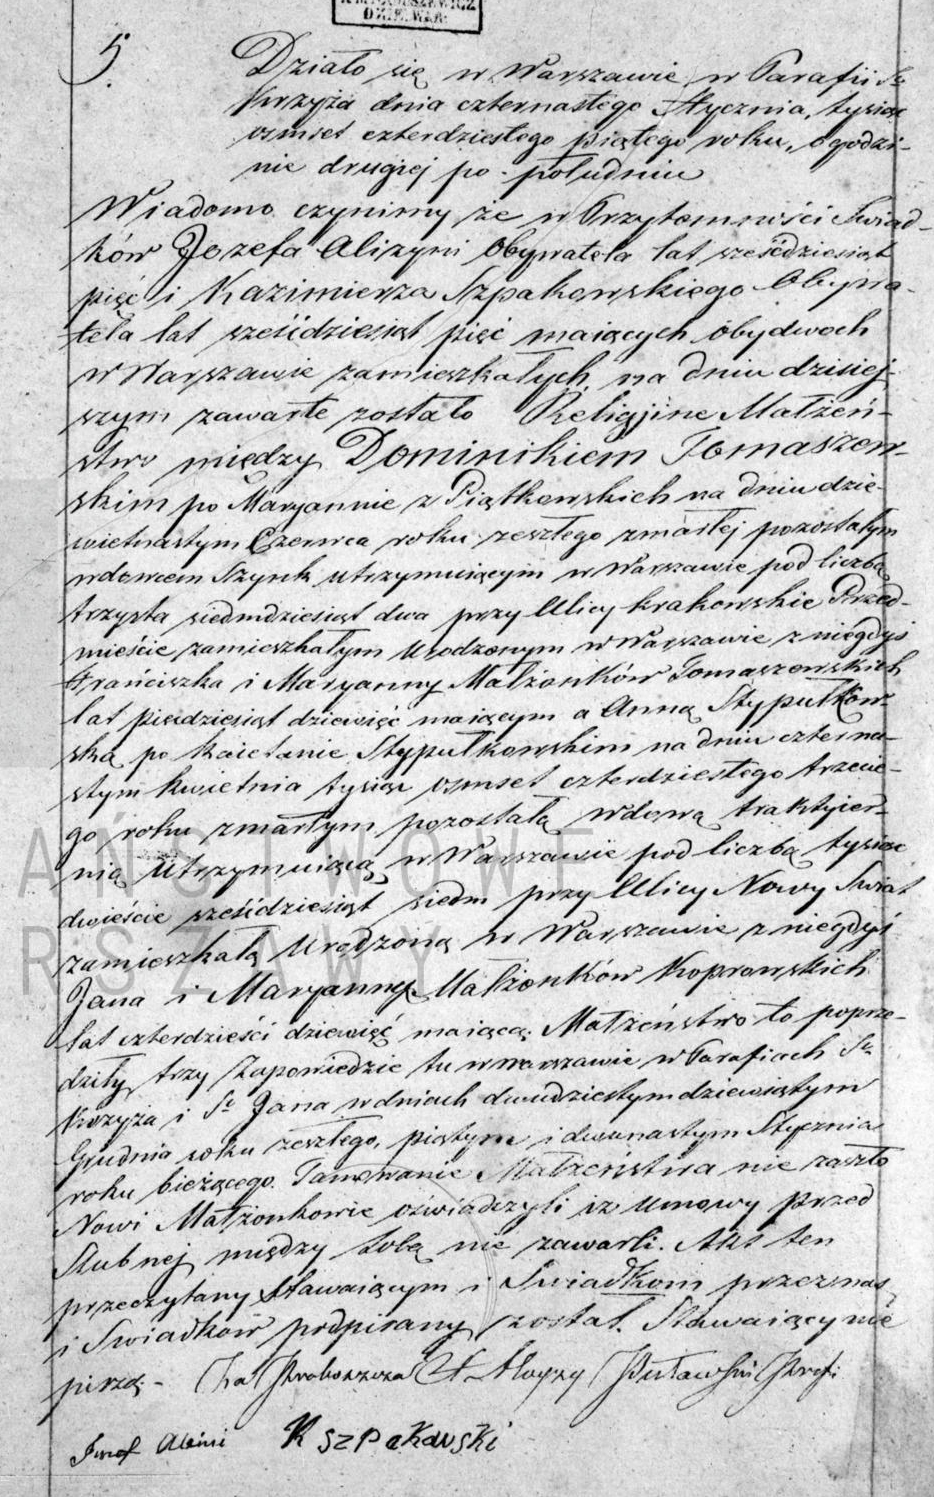 DZIEKAN
5.
Działo się w Warszawie w Parafii Sgo
Krzyża dnia czternastego Stycznia, tysiąc
osmset czterdziestego piątego roku, o godzi-
nie drugiej po południu
Wiadomo czynimy że w Przytomności Swiad-
ków Jozefa Obywatela lat sześćdziesiąt
pięć i Kazimierza Szpakowskiego Obywa-
tela lat sześćdziesiąt pięć maiących obydwoch
w Warszawie zamieszkałych, na dniu dzisiej-
szym zawarte zostało Religijne Małżeń-
stwo między Dominikiem Tomaszew-
skim po Maryannie z Piątkowskich na dniu dzie-
wietnastym Czerwca roku zeszłego zmarłej pozostałym
wdowcem Szynk utrzymuiącym w Warszawie pod liczbą
trzysta siedmdziesiąt dwa przy Ulicy Krakowskie Przed-
mieście zamieszkałym urodzonym w Warszawie z niegdyś
Franciszka i Maryanny Małżonków Tomaszewskich
lat pięćdziesiąt dziewięć maiącym a Anną Stypułkow-
ską po Kaietanie Stypułkowskim na dniu czterna-
stym Kwietnia tysiąc osmset czterdziestego trzecie-
go roku zmarłym pozostałą wdową traktyier-
nią utrzymuiącą w Warszawie pod liczbą tysiąc
dwieście sześćdziesiąt siedm przy Ulicy Nowy Swiat
zamieszkałą urodzoną w Warszawie z niegdyś
Jana i Maryanny Małżonków Koprowskich
lat czterdzieści dziewięć maiącą. Małżeństwo to poprze-
dziły trzy Zapowiedzie tu w Warszawie w Parafiach Sgo
Krzyża i Sgo Jana w dniach dwudziestym dziewiątym
Grudnia roku zeszłego, piątym i dwunastym Stycznia
roku bieżącego. Tamowanie Małżeństwa nie zaszło
Nowi Małżonkowie oświadczyli iż umowy przed
Slubnej między sobą nie zawarli. Akt ten
przeczytany Stawaiącym i Swiadkom przez nas
i Swiadków podpisany został. Stawaiący nie
piszą - Za Proboszcza X Aloyzy Putawski
Jozef
K Szpakowski
AŃSTWOWE
RSZAWY